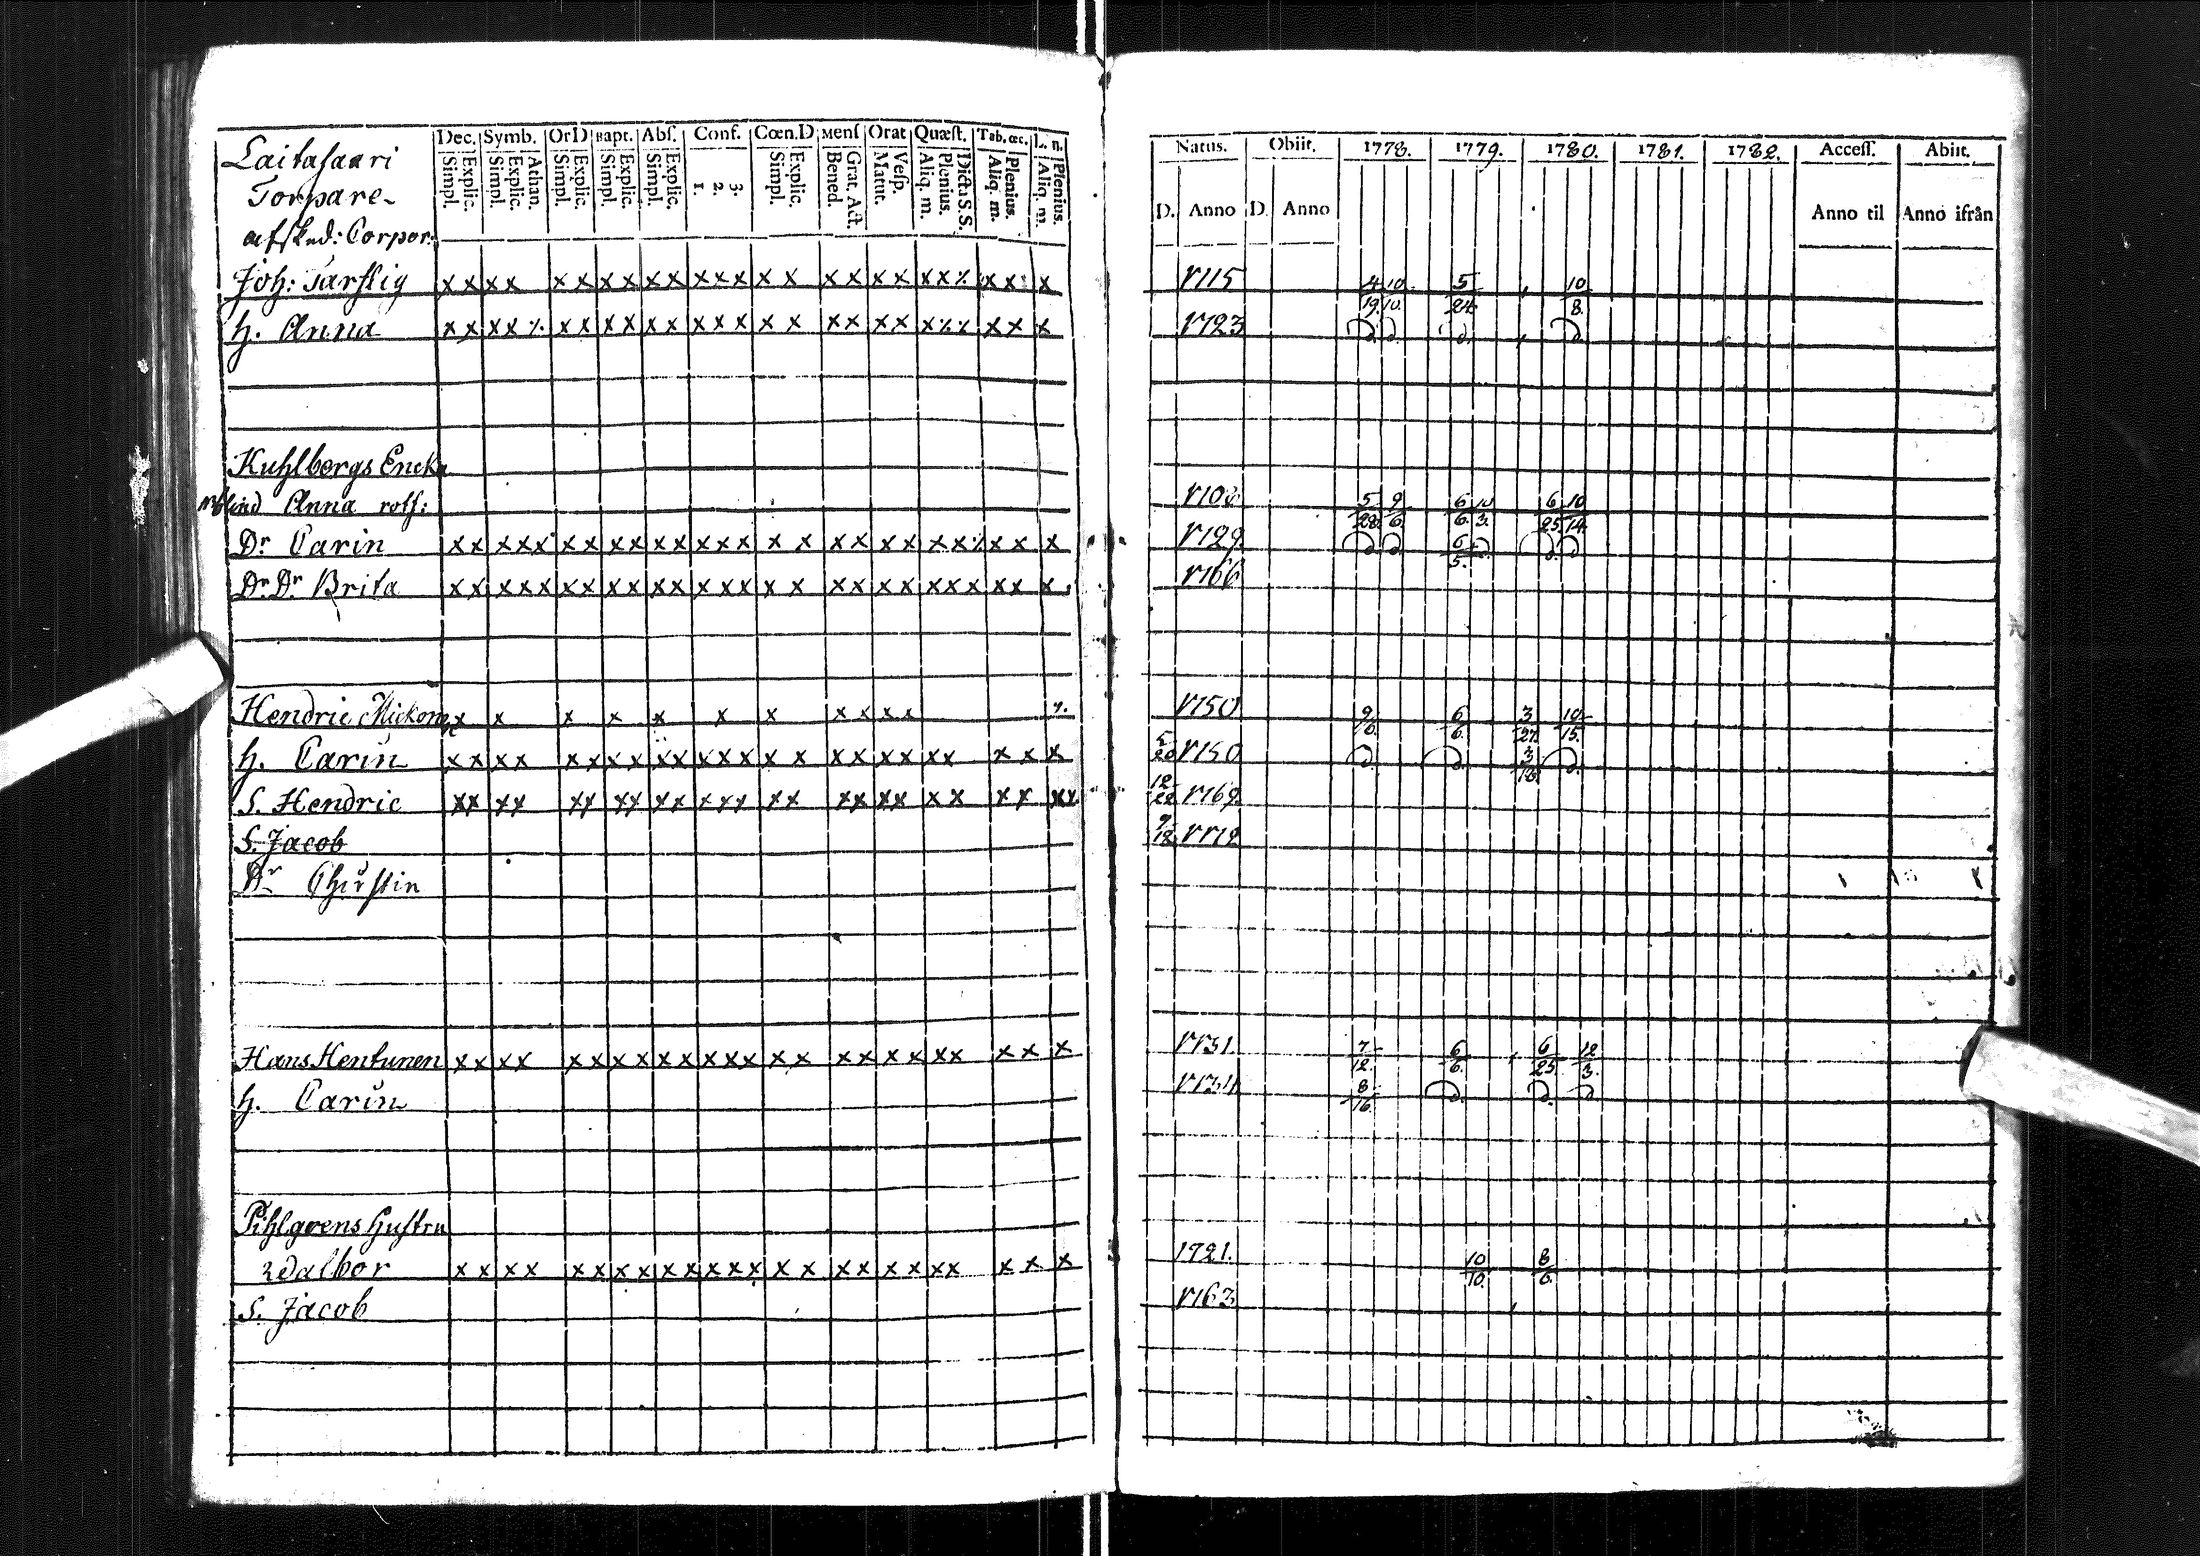 Dec. Symb. OrD Bapt. Abſ. Conf. Cœn.D Menſ Orat Quæſt. Tab.œc. L. n.
Simpl. Explic. Simpl. Explic. Athan. Simpl. Explic. Simpl. Explic. Simpl. Explic. 1. 2. 3. Simpl. Explic. Bened. Grat. Act. Matut. Veſp. Aliq. m. Plenius. Dicta S.S. Aliq. m. Plenius. Aliq. m. Plenius.
Laitasaari
Torpare
afsked: Corpor:
Joh: Tarflig x x x x x x x x x x x x x x x x x x x x x ⁒ x x x
H. Anna x x x x ⁒ x x x x x x x x x x x x x x x x ⁒ ⁒ x x x
Kuhlbergs Encka
blind Anna
Dr Carin x x x x x x x x x x x x x x x x x x x x x x ⁒ x x x
Dr Dr Brita x x x x x x x x x x x x x x x x x x x x x x x x x x
Hendric x x x x x x x x x x x ⁒
H. Carin x x x x x x x x x x x x x x x x x x x x x x x x
S. Hendric x x x x x x x x x x x x x x x x x x x x x x x x x
S. Jacob
Dr Chirstin
Hans Hentunen x x x x x x x x x x x x x x x x x x x x x x x x
H. Carin
Pihlgrens Hustru
Walbor x x x x x x x x x x x x x x x x x x x x x x x x
S. Jacob
Natus. Obiit. 1778. 1779. 1780. 1781. 1782. Acceſſ. Abiit.
D. Anno D. Anno Anno til Anno ifrån
1715 4/19 10/10. 5/24 10/8.
1723 d. d. d. d.
5/28 9/6. 6/6. 10/3. 6/25 10/14.
1729 d. d. 6/5. d. d. d.
1766
1750 9/6. 6/6. 3/27. 10/15.
5/20 1750 d. d. 3/18. d.
12/22 1769.
9/18 1772
1731. 7/12. 6/6. 6/25 12/3.
1734. 8/16. d. d. d.
1721. 10/10. 8/6.
1763